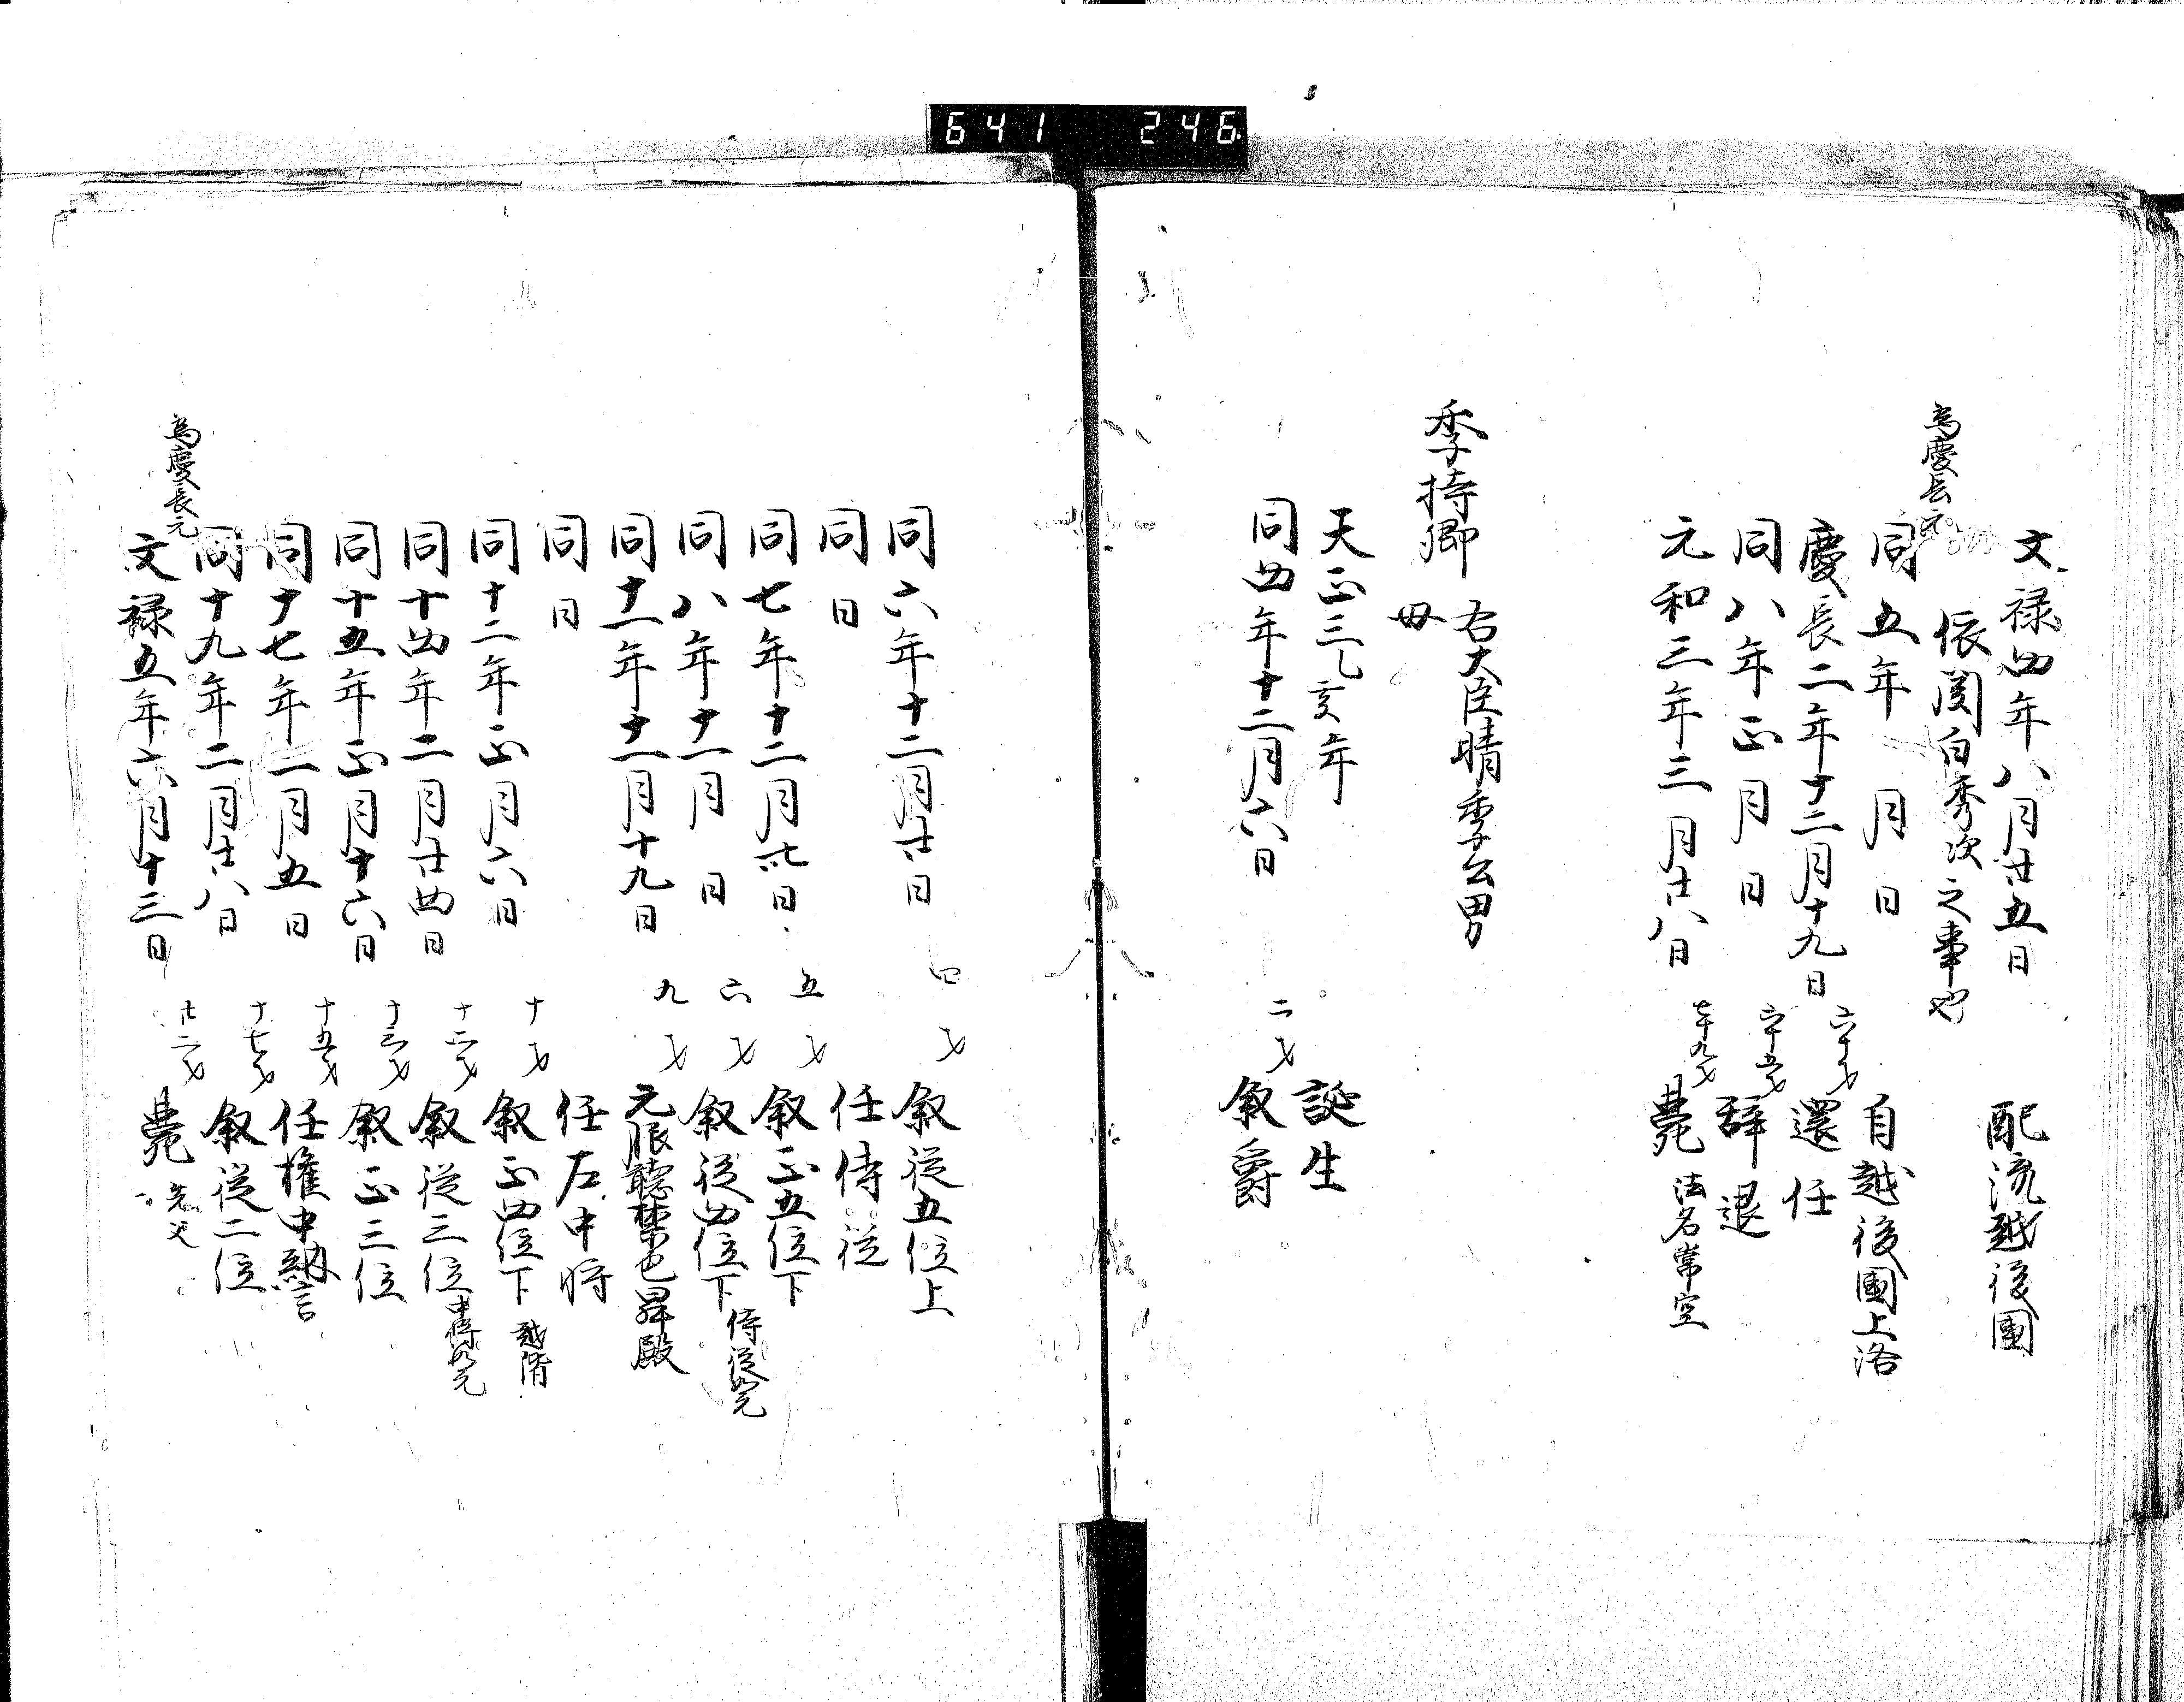 641 246
文禄四年八月廿五日 配流越後國
依関白秀次之事也
為慶長元
同五年 月 日 自越後國上洛
慶長二年十二月十九日 六十才 還任
同八年正月 日 六十五才 辞退
元和三年三月廿八日 七十九才 薨 法名常空
季持卿 右大臣晴季公男
母
天正三乙亥年 誕生
同四年十二月六日 二才 叙爵
同六年十二月廿日 四才 叙従五位上
同日 任侍従
同七年十二月 日 五才 叙正五位下
同八年十一月 日 六才 叙従四位下 侍従如元
同十一年十一月十九日 九才 元服聴禁色昇殿
同日 任左中将
同十二年正月六日 十才 叙正四位下 越階
同十四年二月廿四日 十二才 叙従三位 中将如元
同十五年正月十六日 十三才 叙正三位
同十七年二月五日 十五才 任権中納言
同十九年二月廿八日 十七才 叙従二位
為慶長元
文禄五年六月十三日 廿二才 薨 先父